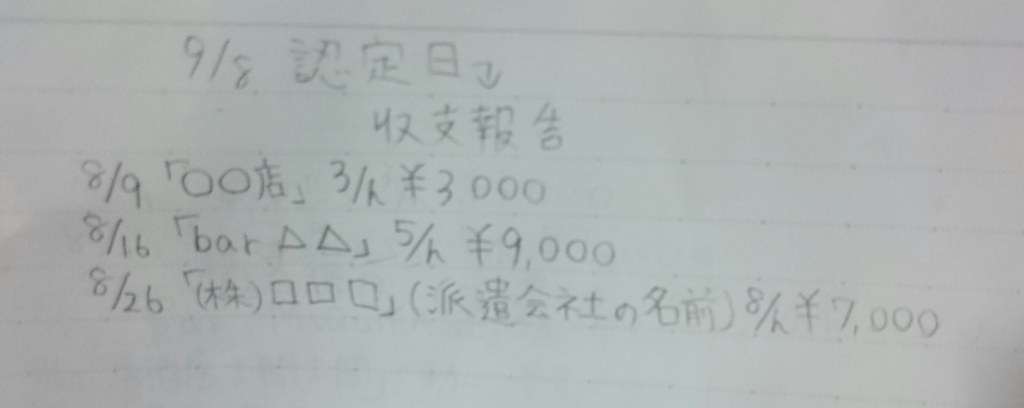 9/8 認定日↓
収支報告
8/9「〇〇店」3/h ¥3000
8/16「bar △△」5/h ¥9,000
8/26「(株)□□□」(派遣会社の名前)8/h ¥7,000